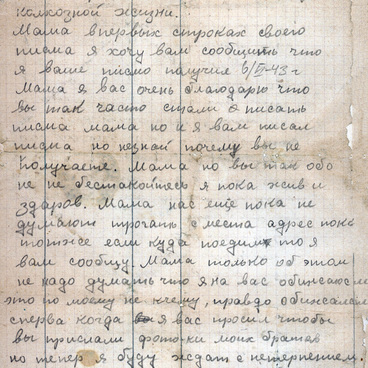 колхозной жизни.
Мама впервых строках своего
писма я хочу вам сообщить что
я ваше писмо получил 6/II-43 г
Мама я вас очень благодарю что
вы так часто стали писать
писма мама но и я вам писал
писма но незнай почему вы не
получаете. Мама но вы так обо
не не беспакойтесь я пока жив и
здаров. Мама нас еще пока не
думают трогать с места адрес пока
тотже если куда поедим то я
вам сообщу. Мама только об этом
не надо думать что я на вас обижаюсь
это по моему не к чему, правдо обижался
сперва когда я вас просил чтобы
вы прислали фото-ки моих братов
но тепер я буду ждат с нетерпением.